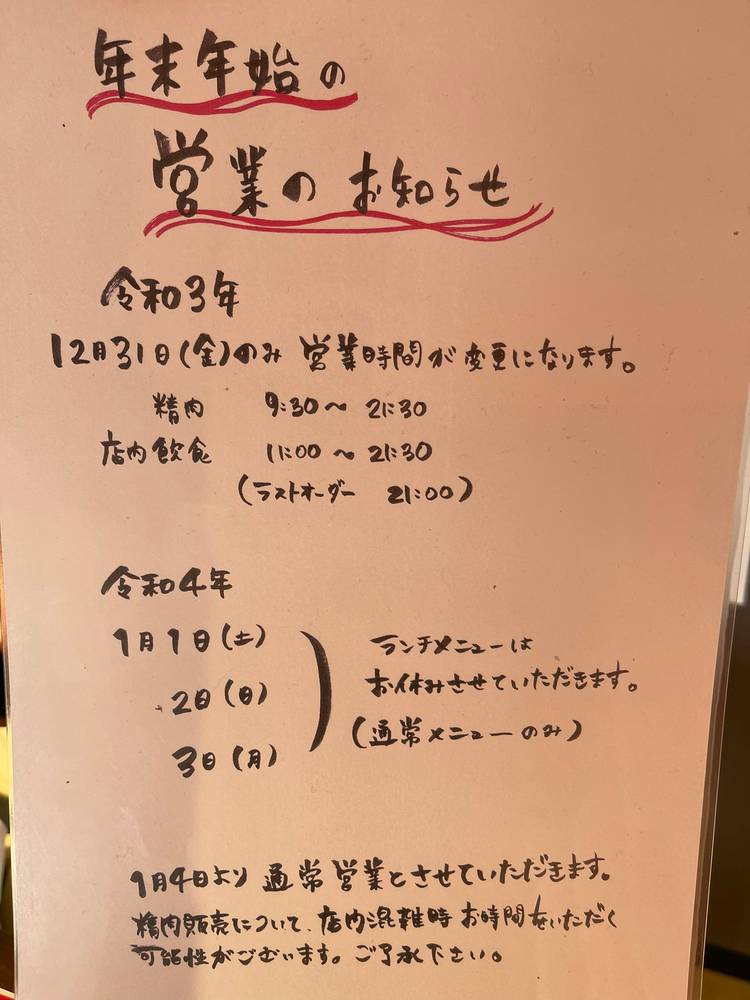 年末年始の
営業のお知らせ
令和3年
12月31日(金)のみ 営業時間が変更になります。
精肉 9:30〜21:30
店内飲食 11:00〜21:30
(ラストオーダー 21:00)
令和4年
1月1日(土)
2日(日)
3日(月)
ランチメニューは
お休みさせていただきます。
(通常メニューのみ)
1月4日より 通常営業とさせていただきます。
精肉販売について、店内混雑時お時間をいただく
可能性がございます。ご了承下さい。